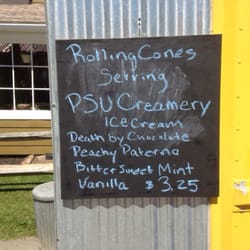 Rolling Cones
Serving
PSU Creamery
Ice Cream
Death by Chocolate
Peachy Paterno
Bitter Sweet Mint
Vanilla $3.25